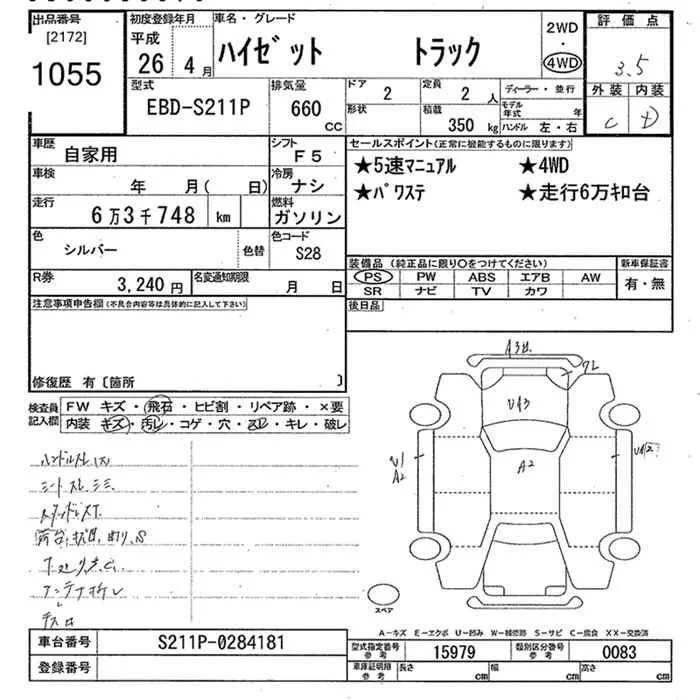 出品番号 初度登録年月 車名・グレード 2WD 評価点
[2172] 平成 ハイゼット トラック ・ 3.5
1055 26年 4月 4WD 外装 内装
型式 排気量 ドア 2 定員 2人 ディーラー・並行 C D
EBD-S211P 660cc 形状 積載 350kg モデル年式 年
ハンドル 左・右
車歴 自家用 シフト F5 セールスポイント(正常に機能するものに限ります)
車検 年 月( 日) 冷房 ナシ ★5速マニュアル ★4WD
走行 6万3千748 km 燃料 ガソリン ★パワステ ★走行6万キロ台
色 シルバー 色替 色コード S28
装備品(純正品に限り○をつけてください) 新車保証書
R券 3,240円 名変通知期限 月 日 PS PW ABS エアB AW 有・無
SR ナビ TV カワ
注意事項申告欄(不具合内容等は具体的に記入して下さい) 後日品
修復歴 有〔箇所 〕
検査員記入欄 FW キズ・飛石・ヒビ割・リペア跡・×要
内装 キズ・汚レ・コゲ・穴・スレ・キレ・破レ
A2
U1
A2
スペア
A-キズ E-エクボ U-凹み W-補修跡 S-サビ C-腐食 XX-交換済
車台番号 S211P-0284181 型式指定番号 参考 15979 類別区分番号 参考 0083
登録番号 車庫証明用 参考 長さ cm 幅 cm 高さ cm